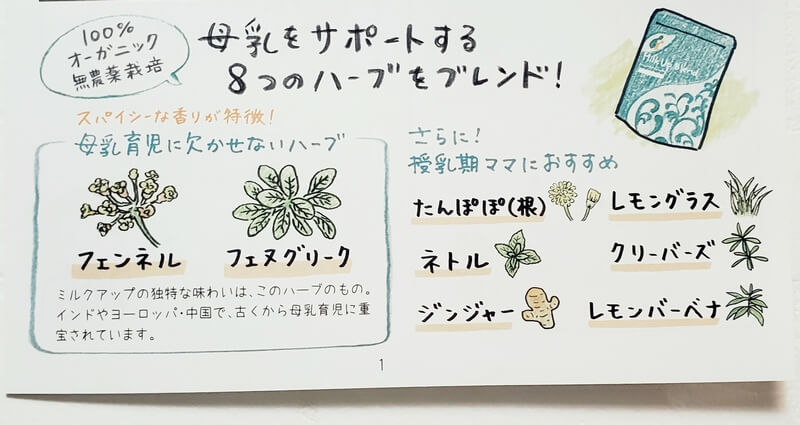 100%
オーガニック
無農薬栽培
母乳をサポートする
8つのハーブをブレンド!
Milk Up Blend
スパイシーな香りが特徴!
母乳育児に欠かせないハーブ
フェンネル
フェヌグリーク
ミルクアップの独特な味わいは、このハーブのもの。
インドやヨーロッパ・中国で、古くから母乳育児に重
宝されています。
さらに!
授乳期ママにおすすめ
たんぽぽ(根)
レモングラス
ネトル
クリーバーズ
ジンジャー
レモンバーベナ
1